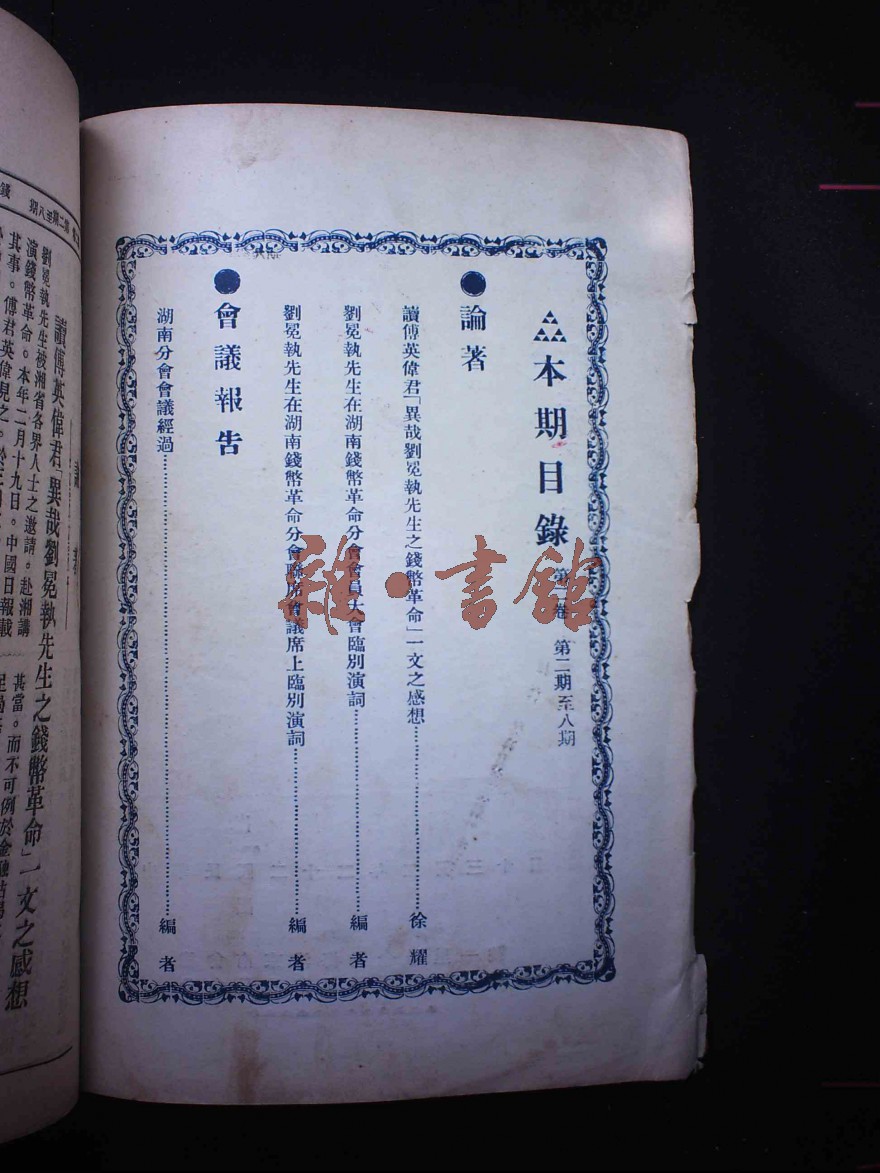 本期目錄 第 卷 第二期至八期
●論著
讀傅英偉君「異哉劉冕執先生之錢幣革命」一文之感想……徐耀
劉冕執先生在湖南錢幣革命分會會員大會臨別演詞……編者
劉冕執先生在湖南錢幣革命分會聯席會議席上臨別演詞……編者
●會議報告
湖南分會會議經過……編者
雜·書館
第二期至八期
讀傅英偉君「異哉劉冕執先生之錢幣革命」一文之感想
劉冕執先生被湘省各界人士之邀請。赴湘講
演錢幣革命。本年二月十九日。中國日報載
其事。傅君英偉見之。
甚當。而不可例於金融